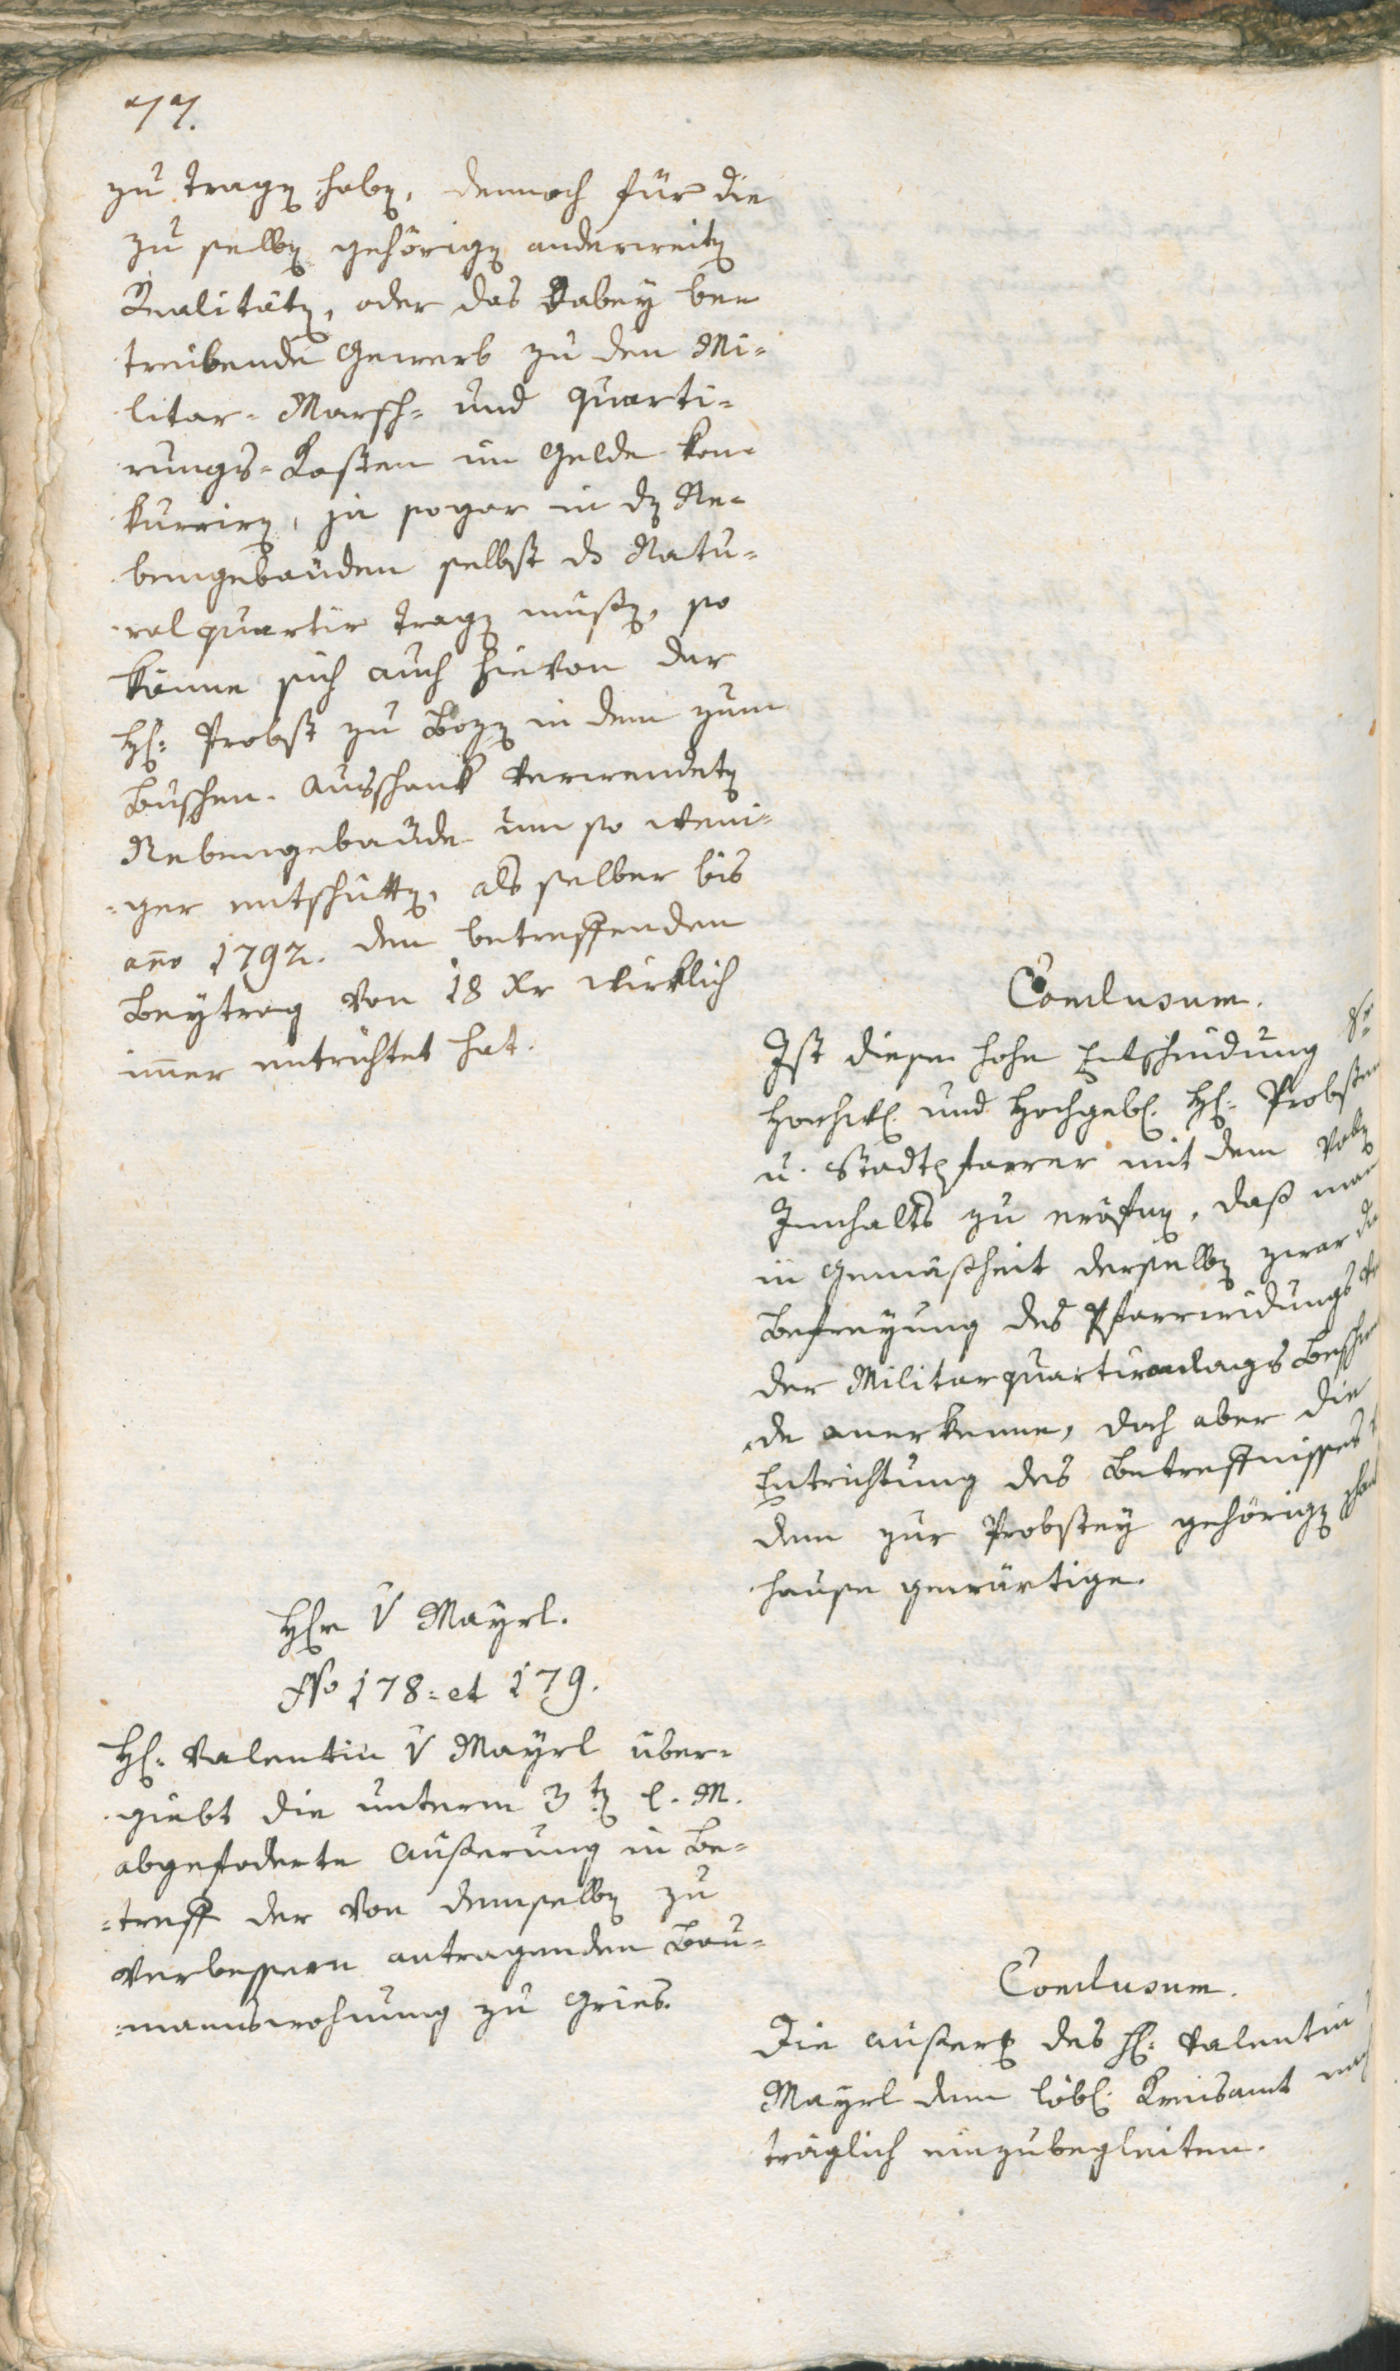 77.
zu tragen haben, dennoch für die
zu selben gehörigen anderweiten
Realitäten, oder das dabey be=
treibende Gewerb zu den Mi=
litar= Marsch= und Quarti=
rungs= Kosten im Gelde kon=
kurriren, ja sogar in den Ne=
bengebäuden selbst das Natu=
ralquartir tragen mußen, so
könne sich auch hievon der
H: Probst zu Bozen in dem zum
Buschen= Ausschank verwendeten
Nebengebaüde um so weni=
=ger entschütten, als selber bis
anno 1792. den betreffenden
Beytrag von 18 Xr wirklich
immer entrichtet hat.
Conclusum.
Ist diese hohe Entscheidung Sr
Hochw. und Hochgeb. H: Probsten
u. Stadtpfarrer mit dem
Innhalts zu eröfnen, daß man
in Gemäßheit derselben zwar die
Befreyung des Pfarrwidums
der Militarquartiranlags
de anerkenne, doch aber die
Entrichtung des Betreffnisses
dem zur Probstey gehörigen
hause gewärtige.
Herr v Mayrl.
No 178: et 179.
H: Valentin v Mayrl über=
giebt die unterm 3ten l. M.
abgefoderte Äußerung in Be=
=treff der von demselben zu
verbessern antragenden Bau=
=mannswohnung zu Gries.
Conclusum.
Die Äußerung des H: Valentin
Mayrl dem löbl. Kreisamt nach
träglich einzubegleiten.